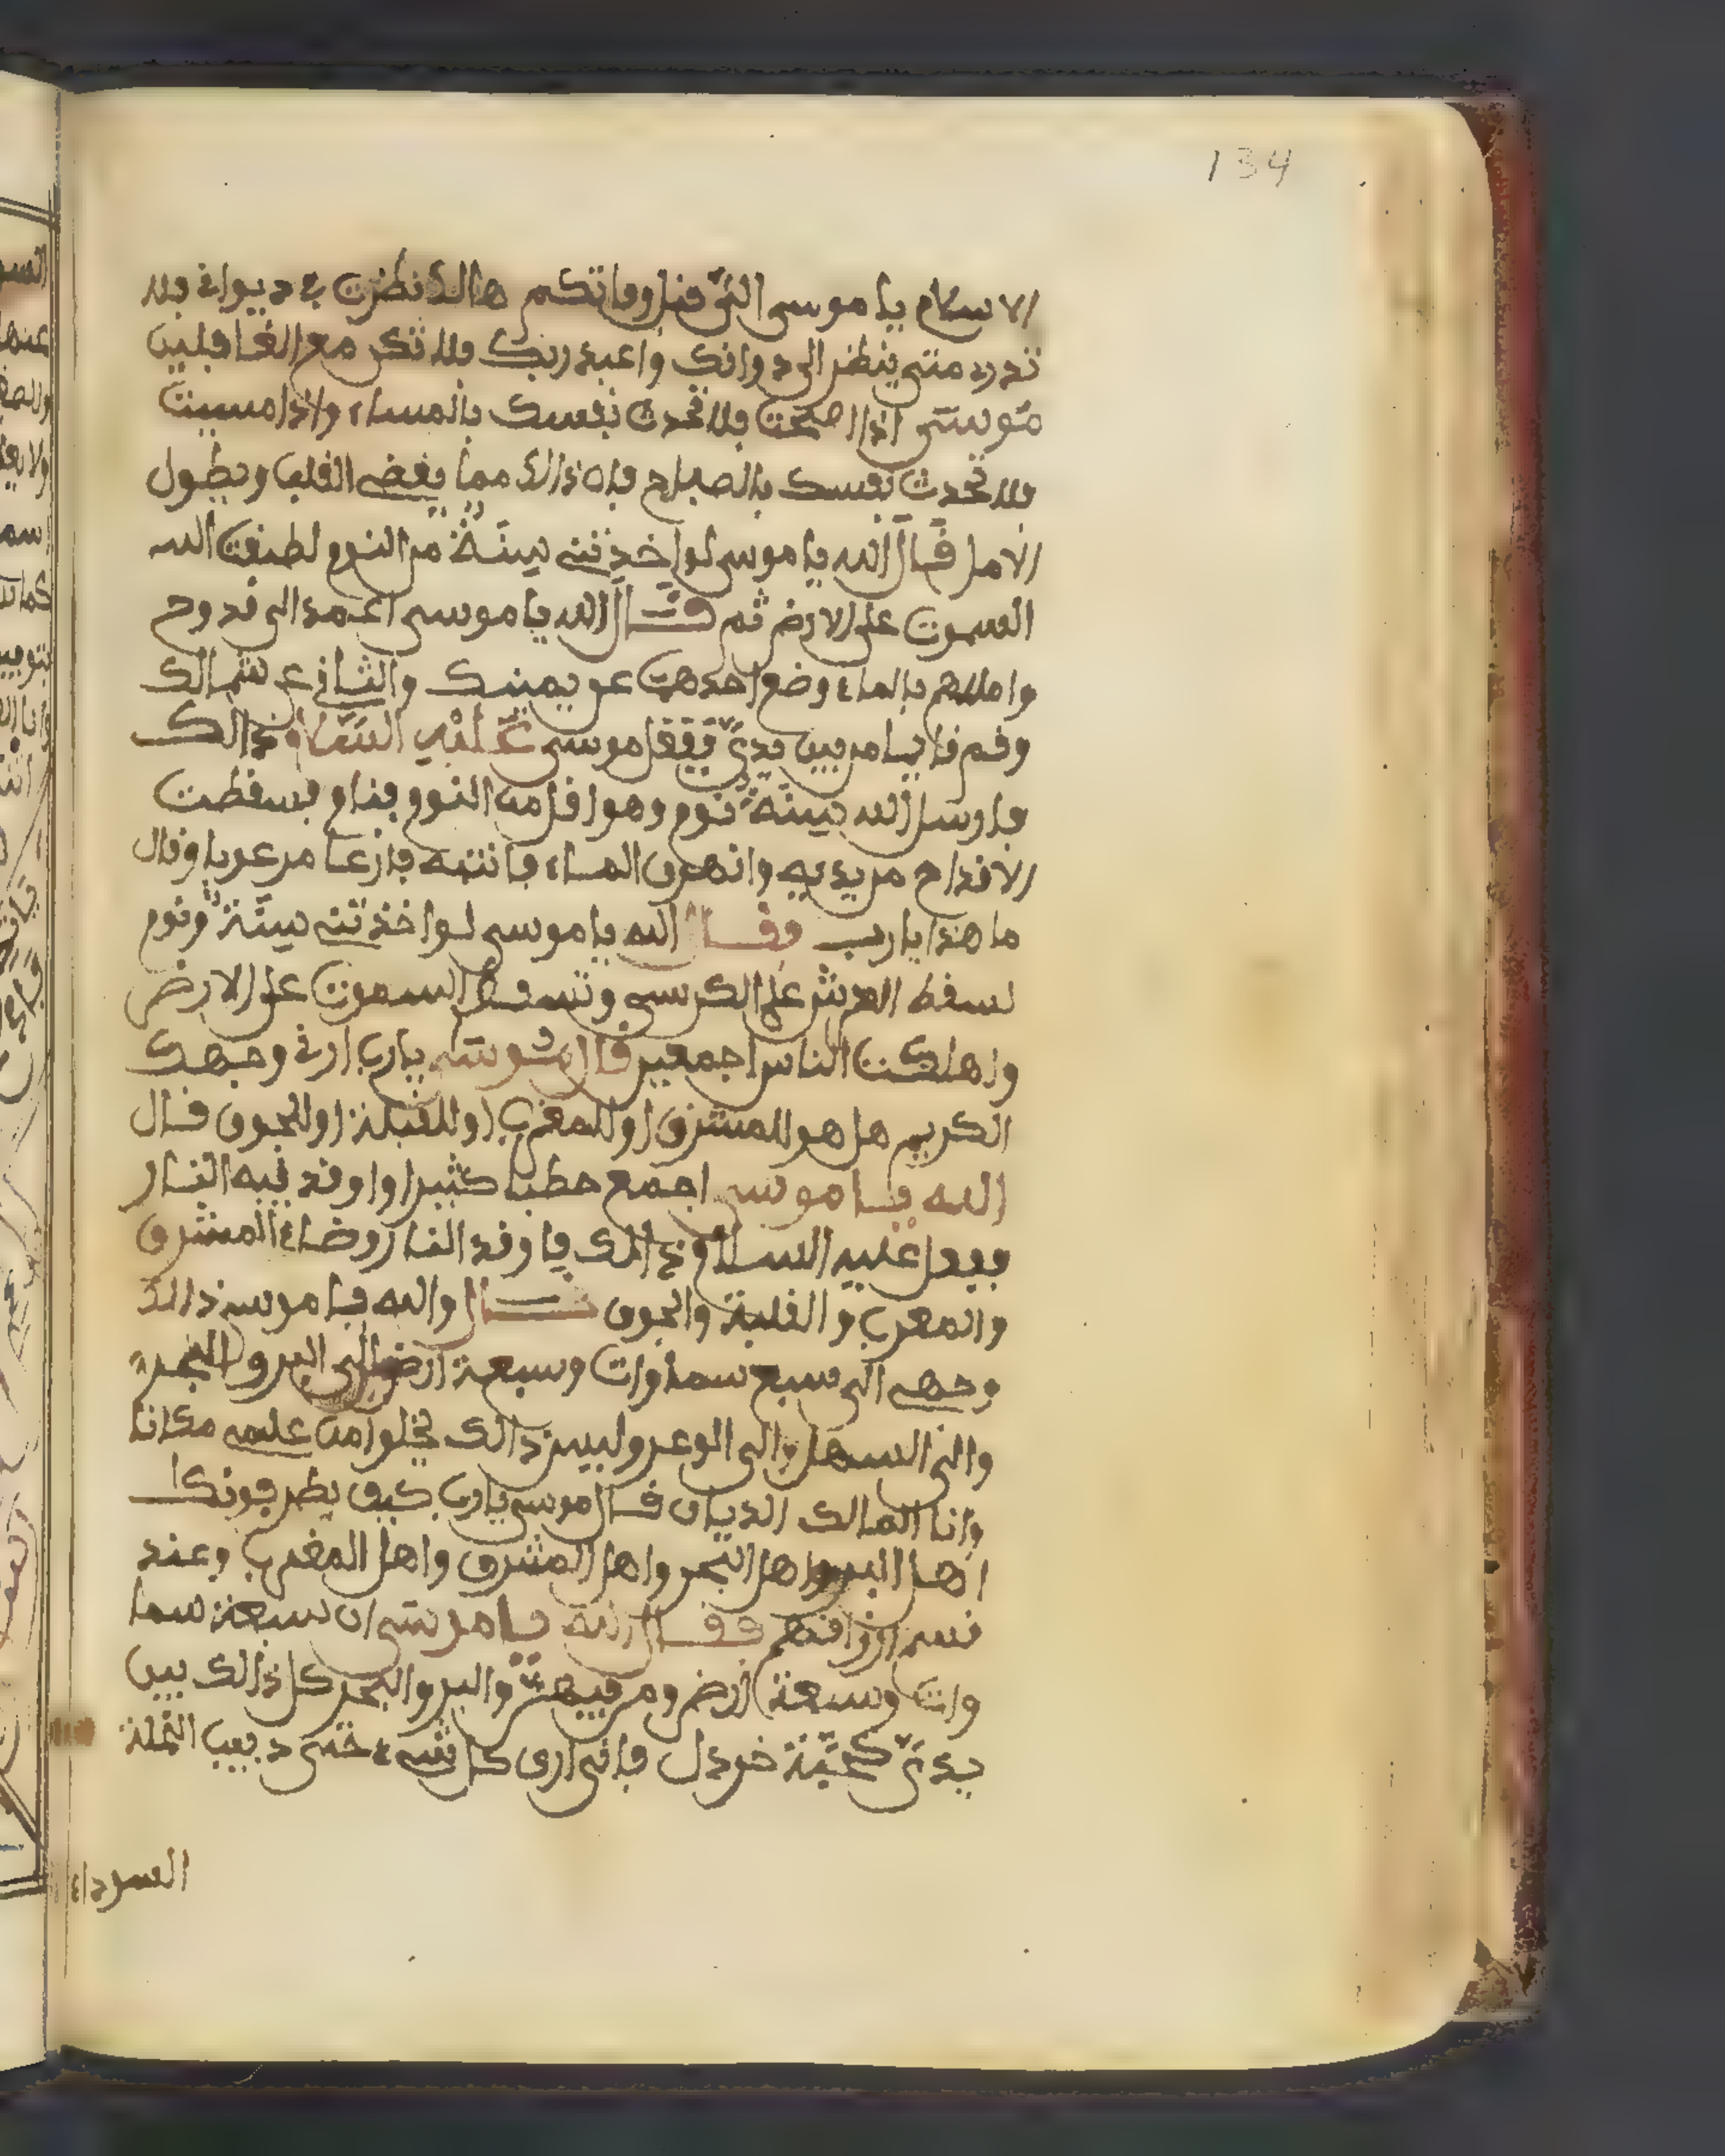 134
الاسلام يا موسى الى قبل وفاتكم هاالك نظرت في ديوانى فلا
تدرى متى ينظر الى دوانك واعبد ربك فلا تكن مع الغافلين
موسى اذا اصبحت فلا تحدث نفسك بالمساء واذا مسيت
فلا تحدث نفسك بالصباح فان ذالك مما يغضى القلب ويطول
الامل قال الله يا موسى لو اخذتنى سنة من النوم لطبقت الله
السموت على الارض ثم قال الله يا موسى اعمد الى قدوح
واملاهم بالماء وضع احدهما عن يمينك والثانى عن شمالك
وقم قايما من بين يدي ففعل موسى عليه السلام ذالك
فارسل الله سنة نوم وهو اقل من النوم فنام فسقطت
الاقداح من يديه وانهرق الماء فانتبه فازعا مرعوبا وقال
ما هذا يا رب فقال الله يا موسى لو اخذتنى سنة ونوم
لسقط العرش على الكرسى وتسقط السموت على الارض
واهلكت الناس اجمعين قال موسى يا رب ارنى وجهك
الكريم هل هو للمشرق او للمغرب او للقبلة او للجوف قال
الله يا موسى اجمع حطبا كثيرا واوقد فيه النار
ففعل عليه السلام ذالك فاوقد النار وضاء المشرق
والمغرب والقلبة والجوف قال والله يا موسى ذالك
وجهى الى سبع سماوات وسبعة ارض الى البر والبحر
والى السهل والى الوعر وليس ذالك يخلوا من عليه مكانا
وانا المالك الديان قال موسى يا رب كيف يطرفونك
اهل البر واهل البحر واهل المشرق واهل المغرب وعند
قسم ارزاقهم فقال الله يا موسى ان سبعة سما
وات وسبعة ارض ومن فيهن والبر والبحر كل ذالك بين
يدي كحبة خردل فانى ارى كل شىء حتى دبيب النملة
السوداء